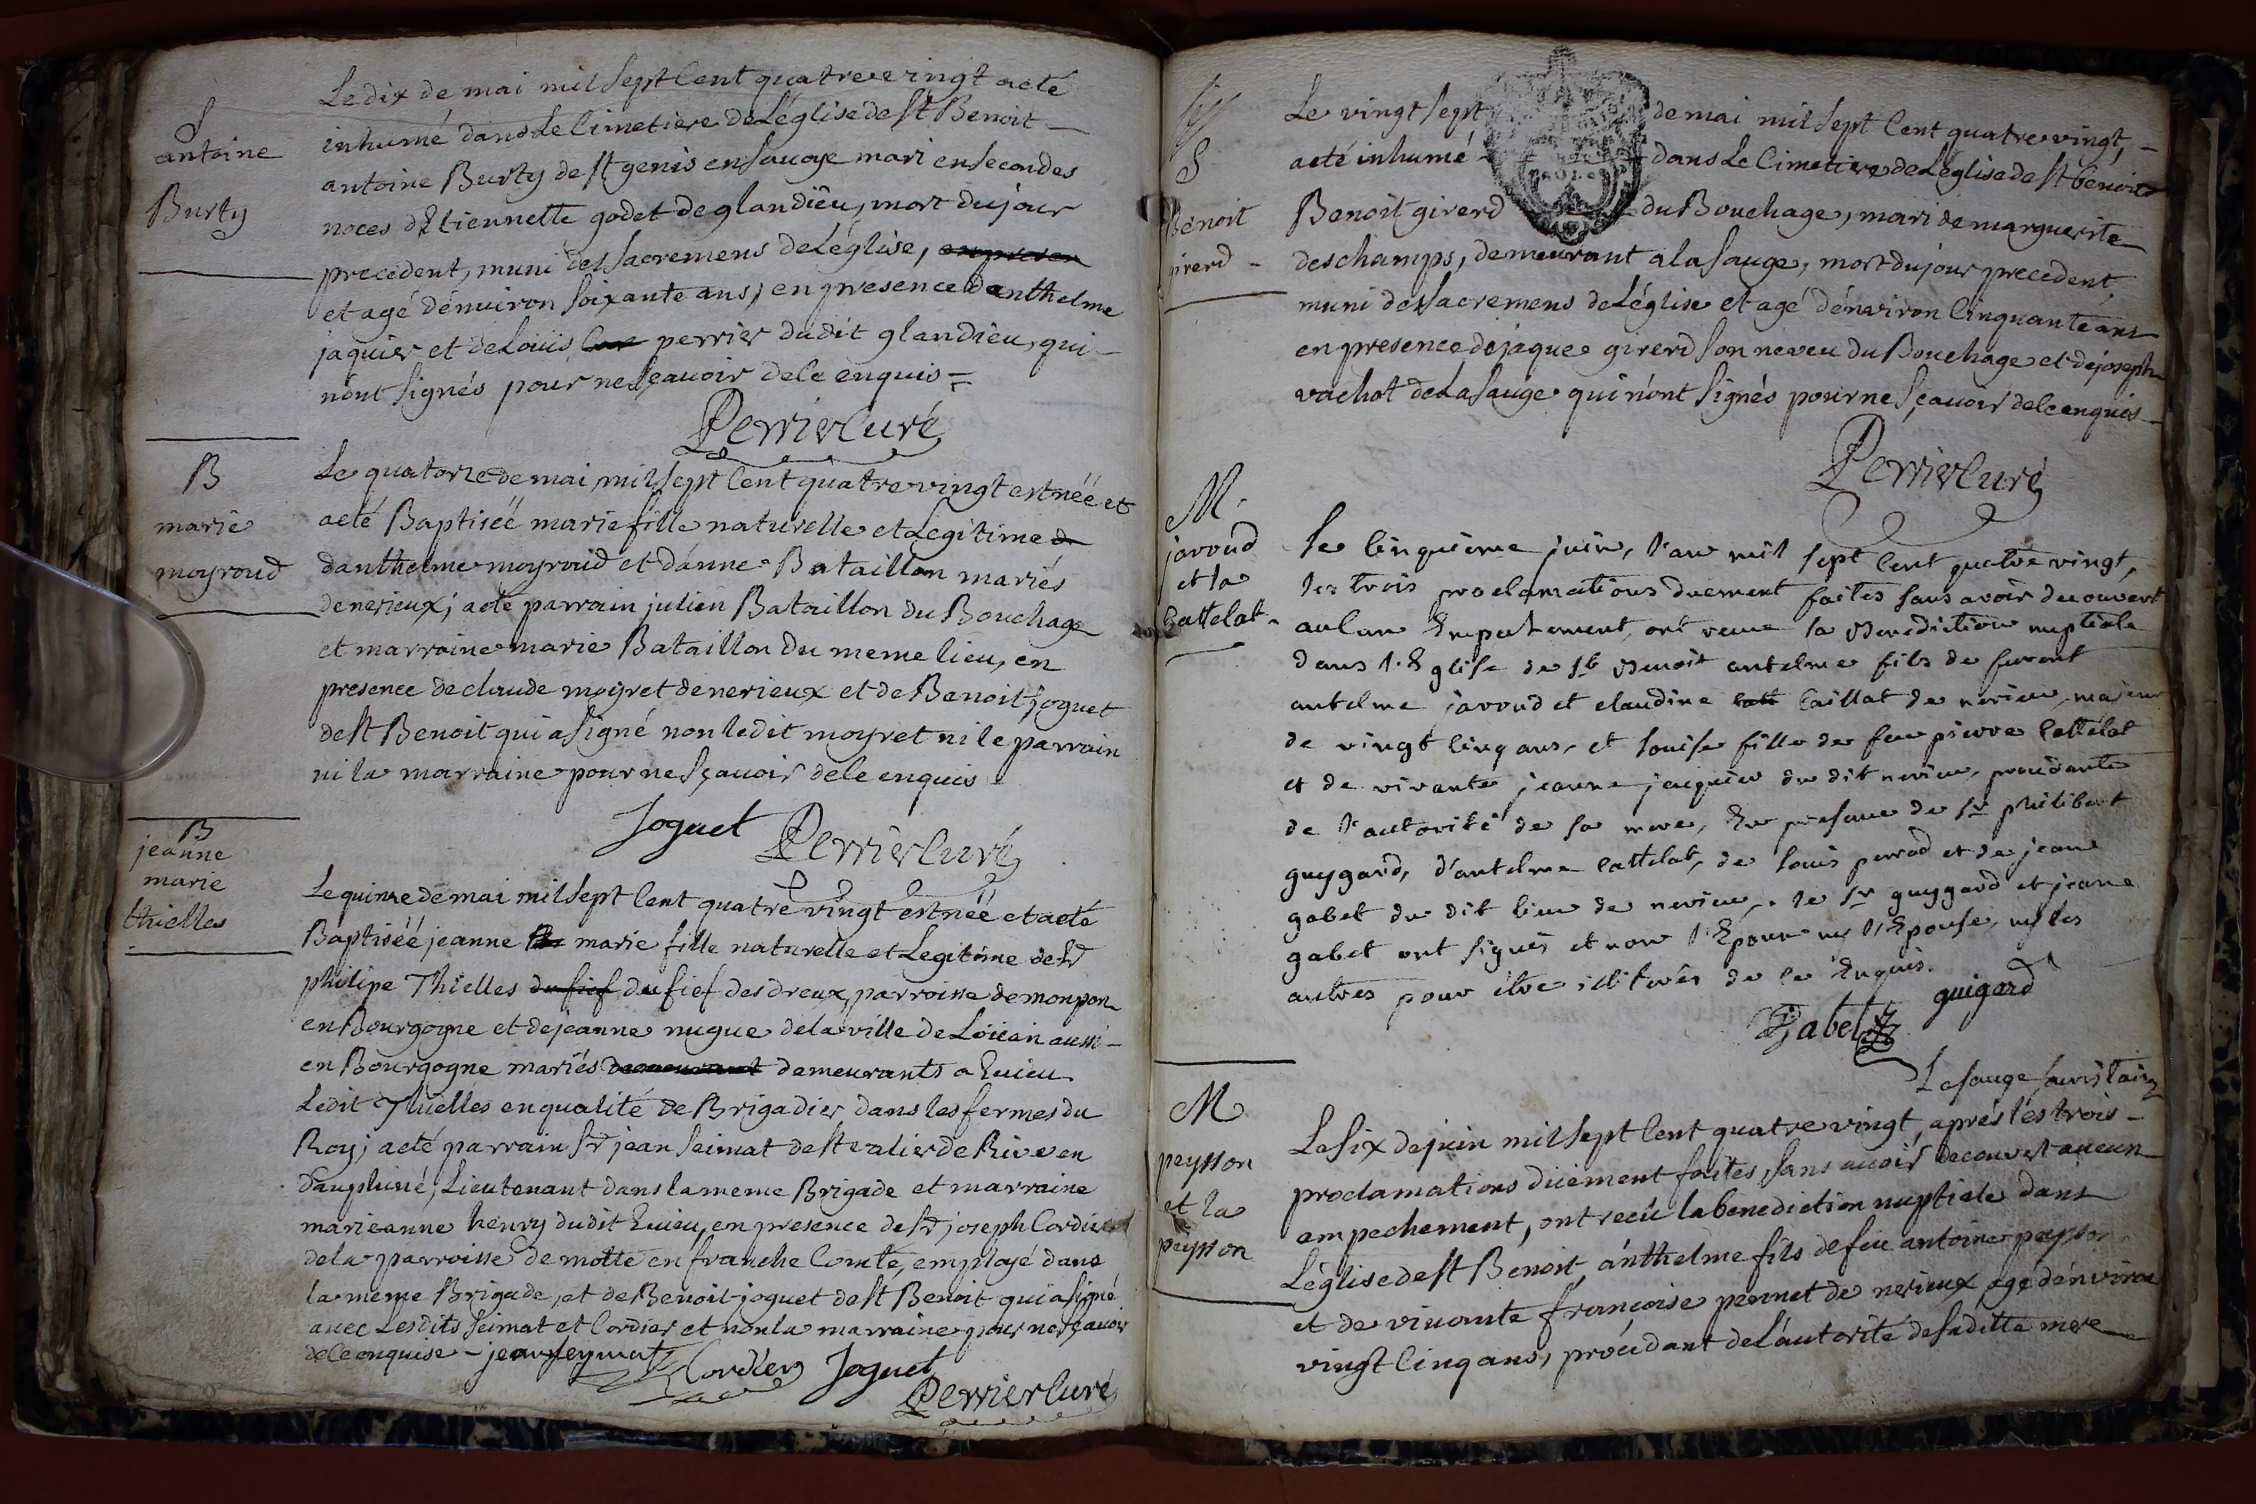 S
antoine
Burty
Le dix de mai mil sept Cent quatre vingt a eté
inhumé dans Le Cimetiere de L'église de St Benoit
antoine Burty de St genis en savoye mari en secondes
noces d'Etiennette godet de glandieu, mort du jour
precedent, muni des sacremens de L'église, en presen
et agé d'environ soixante ans, en presence d'anthelme
jaquier et de Loüis perrier dudit glandieu, qui
n'ont signés pour ne sçavoir de ce enquis
Perrier Curé
B
marie
moyroud
Le quatorze de mai mil sept Cent quatre vingt est néé et
a eté Baptiséé marie fille naturelle et Legitime de
d'anthelme moyroud et d'anne Bataillon mariés
de nerieux; a eté parrain julien Bataillon du Bouchage
et marraine marie Bataillon du meme lieu, en
presence de claude moyret de nerieux et de Benoit joguet
de St Benoit qui a signé non ledit moyret ni le parrain
ni la marraine pour ne sçavoir de ce enquis
Joguet Perrier Curé
B
jeanne
marie
thielles
Le quinze de mai mil sept Cent quatre vingt est néé et a eté
Baptiséé jeanne marie fille naturelle et Legitime de Sr
philipe Thielles du fief du fief des dreux, parroisse de monpon
en Bourgogne et de jeanne nugue de la ville de Loüan aussi
en Bourgogne mariés demeurant demeurants a Evieu
Ledit Thielles en qualité de Brigadier dans les fermes du
Roy; a eté parrain Sr jean seimat de St valier de Rive en
dauphiné, Lieutenant dans la meme Brigade et marraine
marie anne henry dudit Evieu, en presence de Sr joseph Cordier
de la parroisse de motte en franche Comté, employé dans
la meme Brigade, et de Benoit joguet de St Benoit qui a signé
avec Lesdits seimat et Cordier et non la marraine pour ne sçavoir
de ce enquise - jean seymat Cordier Joguet
Perrier Curé
S
Benoit
girerd
Le vingt sept de mai mil sept Cent quatre vingt,
a eté inhumé dans Le Cimetiere de L'église de St benoit
Benoit girerd du Bouchage, mari de marguerite
deschamps, demeurant a la sauge, mort du jour precedent,
muni des sacremens de L'église et agé d'environ Cinquante ans
en presence de jaque girerd son neveu du Bouchage et de joseph
vachot de La sauge qui n'ont signés pour ne sçavoir de ce enquis
Perrier Curé
M.
javoud
et la
Cattelat
Le cinquieme juin, l'an mil sept Cent quatre vingt,
les trois proclamations duement faites sans avoir decouvert
aucun Empechement, ont recue la Benediction nuptiale
dans l'Eglise de St Benoit antelme fils de furent
antelme javoud et claudine Caillat de nerieu, majeur
de vingt cinq ans, et Louise fille de feu pierre Cattelat
et de vivante jeanne jacquier du dit nerieu, procédante
de l'autorité de sa mere, En presence de Sr philibert
guygard, d'antelme Cattelat, de Louis perrod et de jean
gabet du dit lieu de nerieu, le Sr guygard et jean
gabet ont signés et non l'Epoux ny l'Epouse, ny les
autres pour être illiterés de ce Enquis.
Gabet guigard
Lesauge sacristain
M
peysson
et la
peysson
Le six de juin mil sept Cent quatre vingt, après les trois
proclamations düement faites, sans avoir decouvert aucun
empechement, ont reçu la benediction nuptiale dans
L'église de St Benoit, anthelme fils de feu antoine peysson
et de vivante françoise pernet de nerieux agé d'environ
vingt Cinq ans, procédant de l'autorité de sa ditte mere